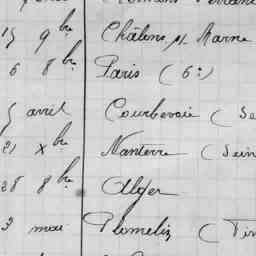 15 9bre Châlons s/ Marne
6 8bre Paris (6e)
5 avril Courbevoie (Se
21 Xbre Nanterre (Sein
28 8bre Alger
3 mai Plomelin (Fin